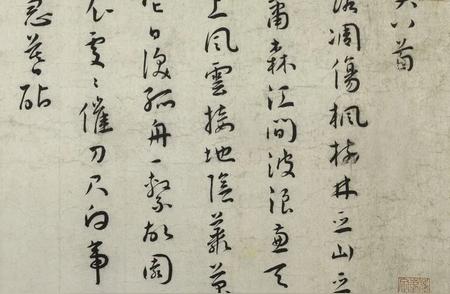 八首
凋傷楓樹林巫山巫
蕭森江間波浪兼天
上風雲接地陰叢菊
他日淚孤舟一繫故園
衣處〻催刀尺白帝
急暮砧